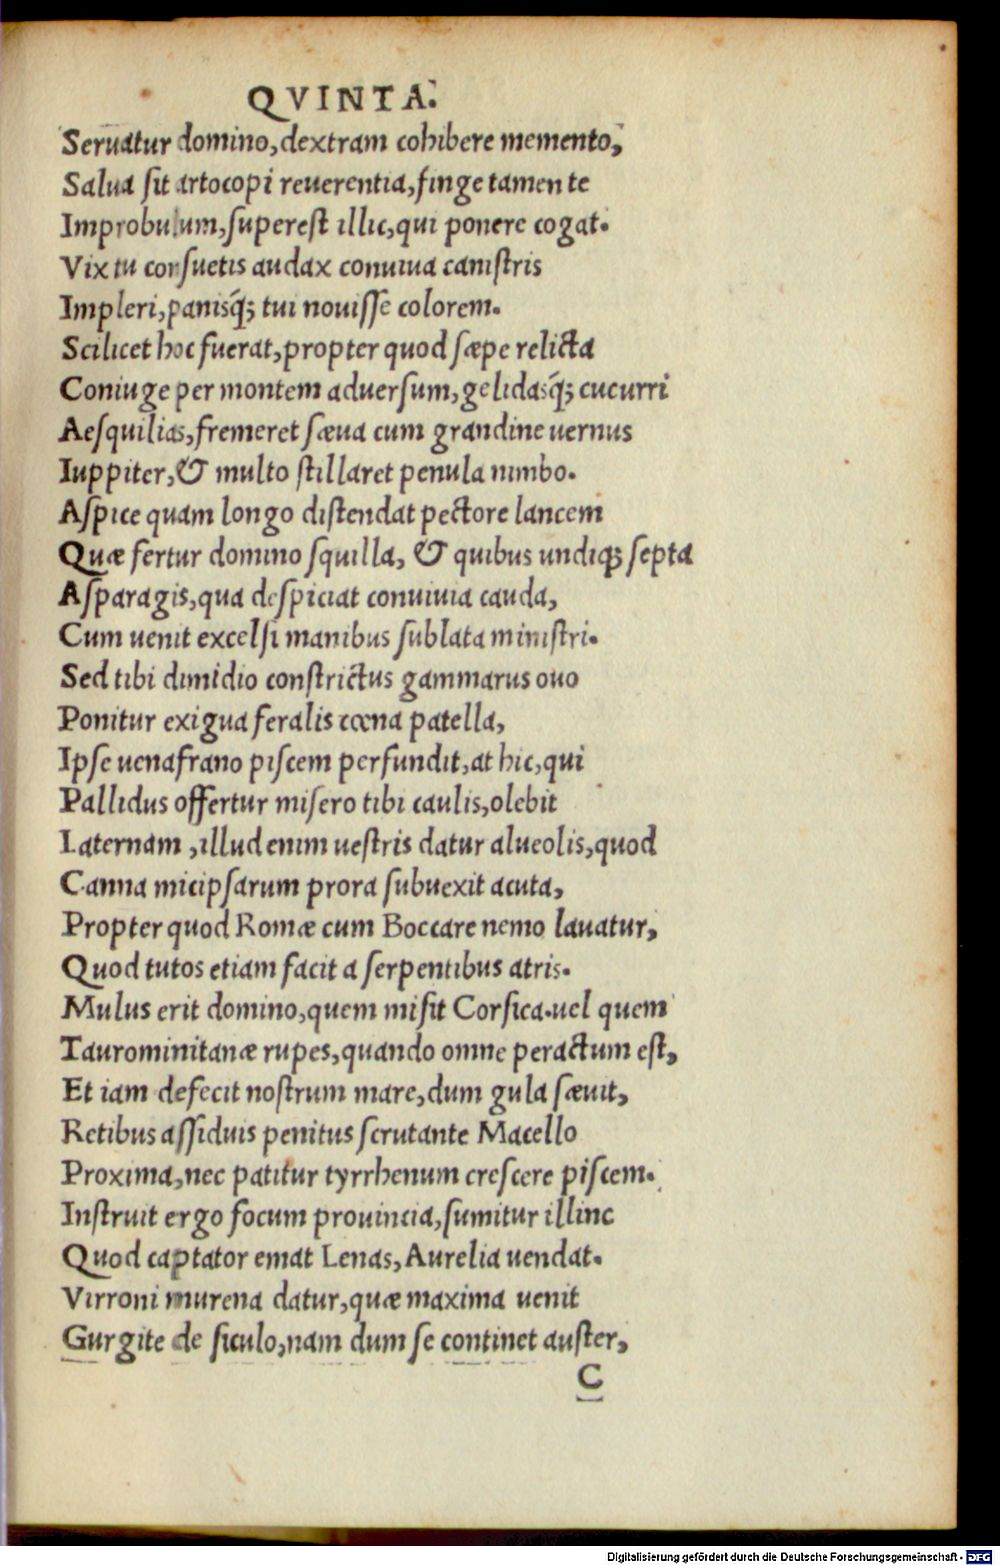 QVINTA.
Seruatur domino, dextram cohibere memento,
Salua sit artocopi reuerentia, finge tamen te
Improbulum, superest illic, qui ponere cogat.
Vix tu consuetis audax conuiua canistris
Impleri, panisq̃; tui nouisse colorem.
Scilicet hoc fuerat, propter quod sæpe relicta
Coniuge per montem aduersum, gelidasq̃; cucurri
Aesquilias, fremeret sæua cum grandine uernus
Iuppiter, & multo stillaret penula nimbo.
Aspice quam longo distendat pectore lancem
Quæ fertur domino squilla, & quibus undiq; septa
Asparagis, qua despiciat conuiuia cauda,
Cum uenit excelsi manibus sublata ministri.
Sed tibi dimidio constrictus gammarus ouo
Ponitur exigua feralis cœna patella,
Ipse uenafrano piscem perfundit, at hic, qui
Pallidus offertur misero tibi caulis, olebit
Laternam, illud enim uestris datur alueolis, quod
Canna micipsarum prora subuexit acuta,
Propter quod Romæ cum Boccare nemo lauatur,
Quod tutos etiam facit a serpentibus atris.
Mulus erit domino, quem misit Corsica. uel quem
Taurominitanæ rupes, quando omne peractum est,
Et iam defecit nostrum mare, dum gula sæuit,
Retibus assiduis penitus scrutante Macello
Proxima, nec patitur tyrrhenum crescere piscem.
Instruit ergo focum prouincia, sumitur illinc
Quod captator emat Lenas, Aurelia uendat.
Virroni murena datur, quæ maxima uenit
Gurgite de siculo, nam dum se continet auster,
C
Digitalisierung gefördert durch die Deutsche Forschungsgemeinschaft - DFG